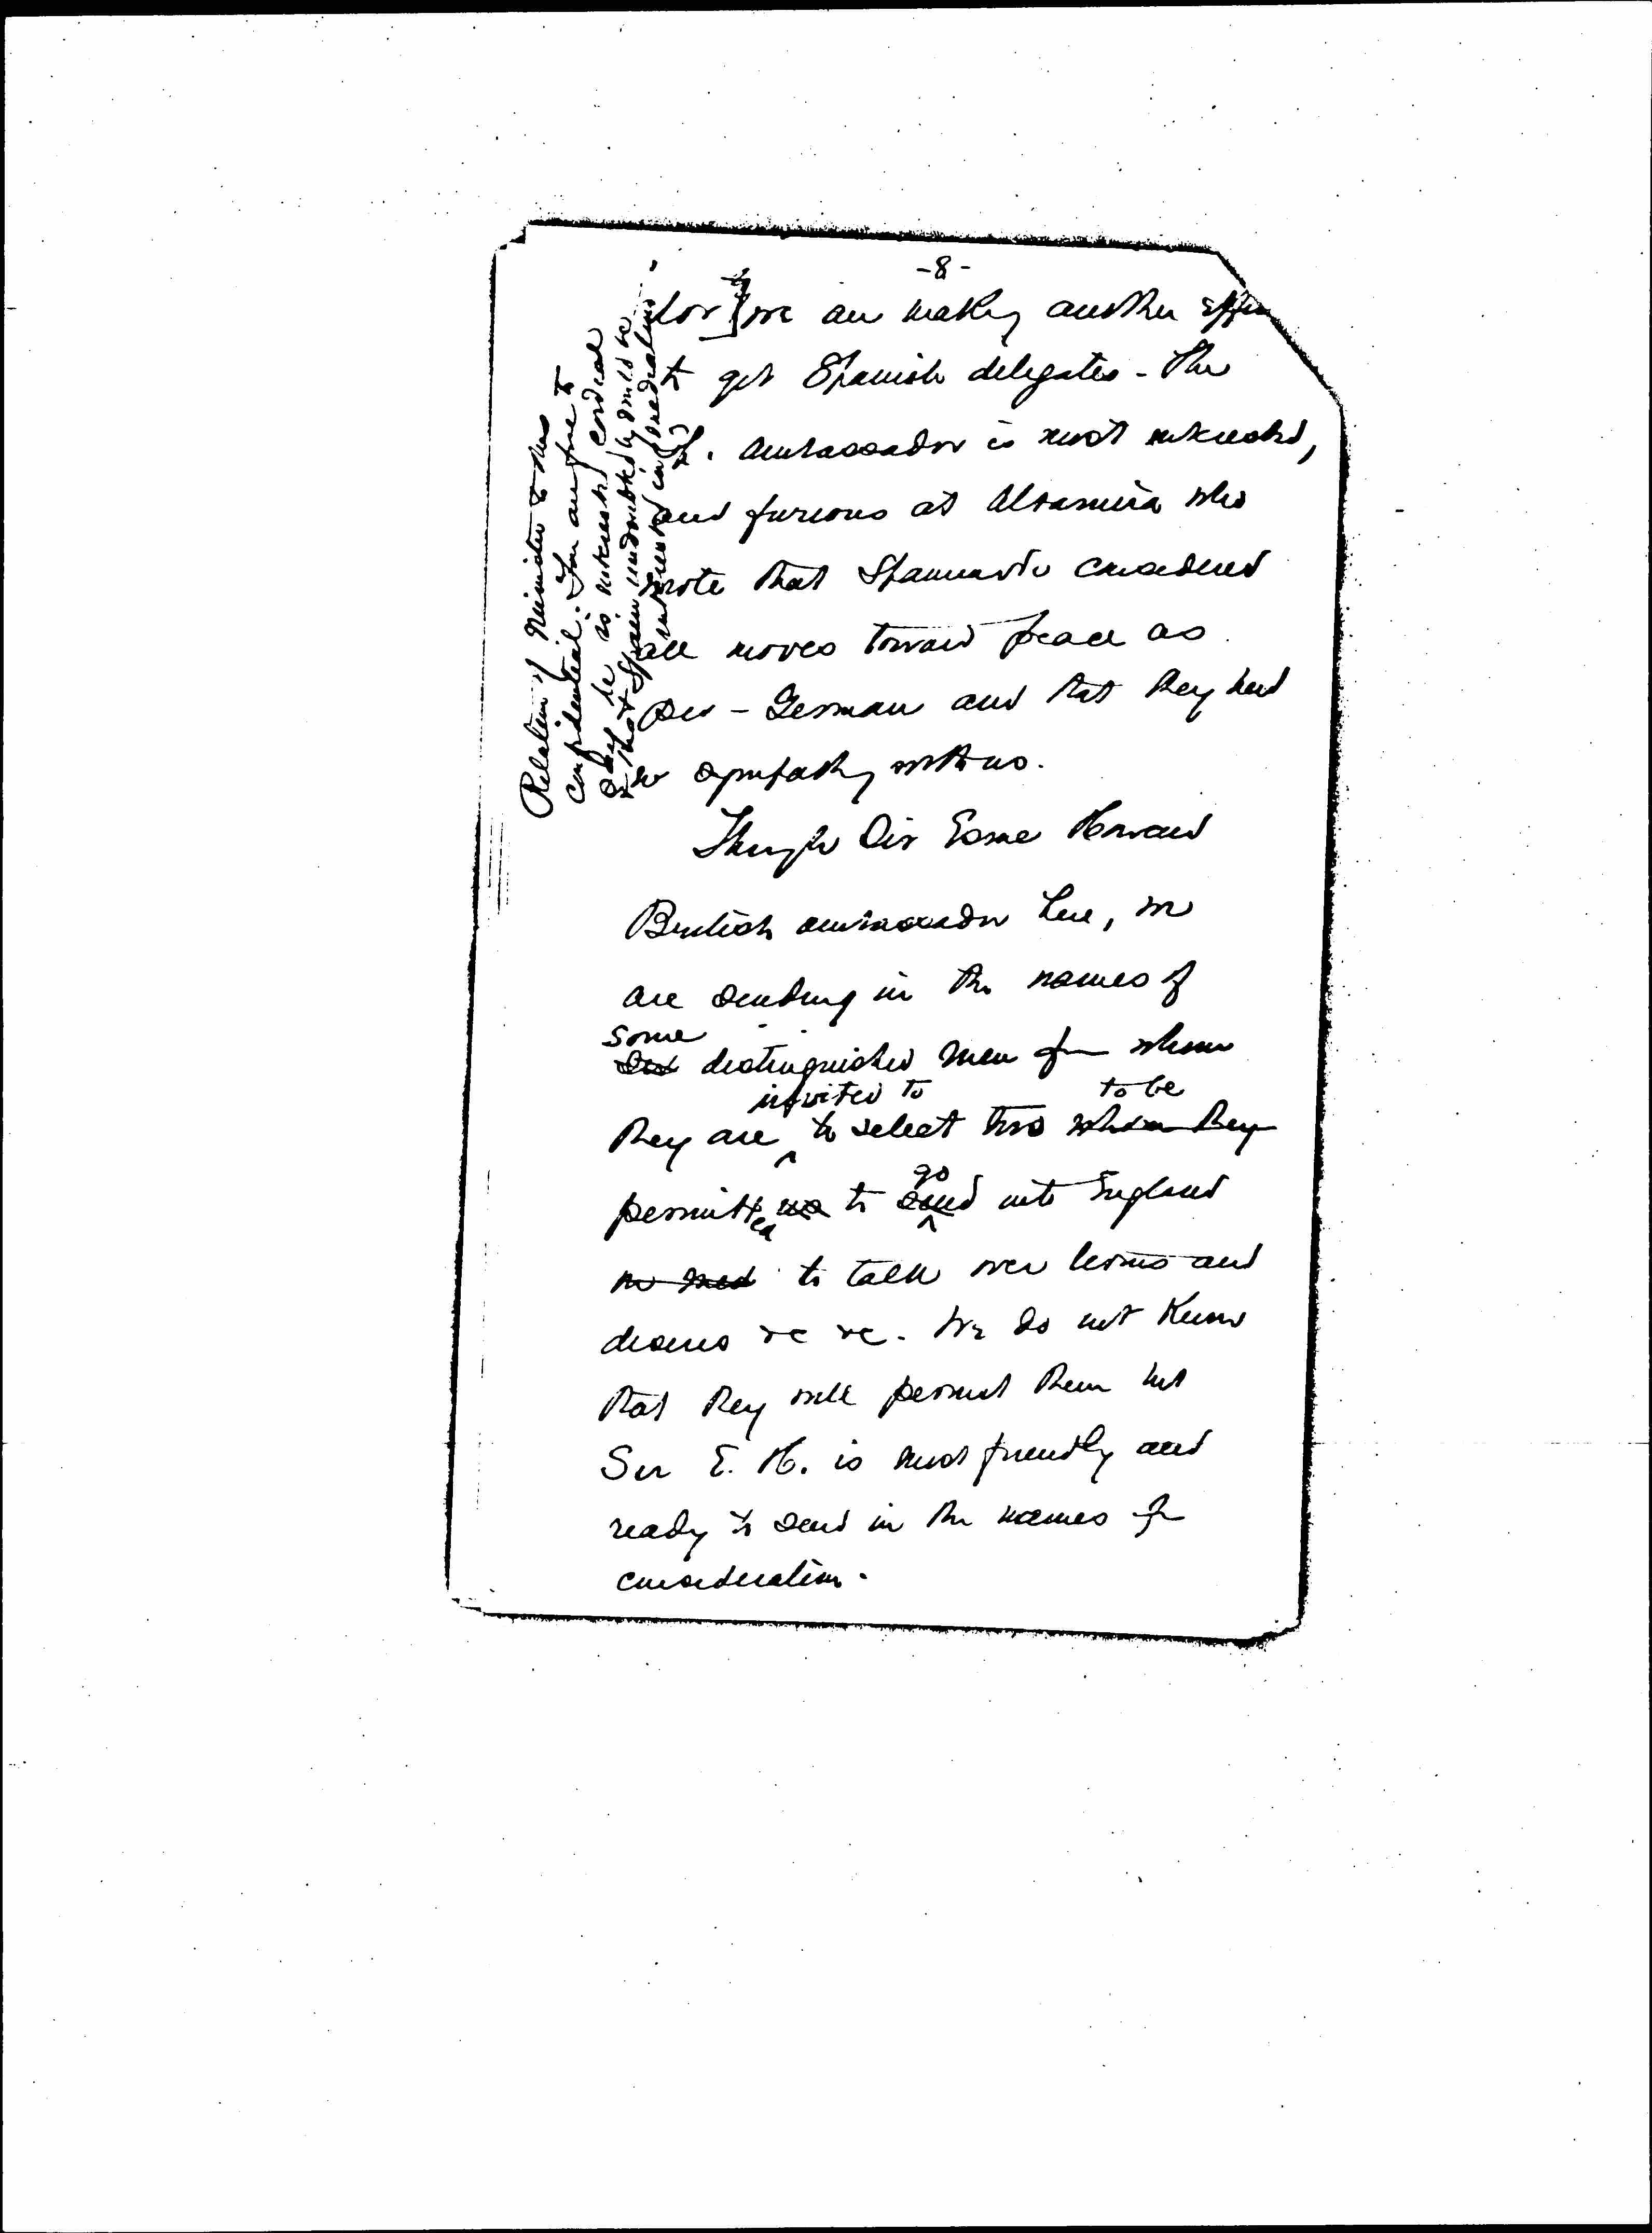 -8-
dor] we are making another effort
to get Spanish delegates - The
S. ambassador is most interested,
and furious at Altamira who
wrote that Spaniards considered
all moves toward peace as
pro-German and that they had
no sympathy with us.
Through Sir Esme Howard
British ambassador here, we
are sending in the names of
some
distinguished men from whom
invited to to be
they are to select two whom they
go
permitted us to send into England
to talk over terms and
desires &c &c. We do not know
that they will permit them but
Sir E. H. is most friendly and
ready to send in the names for
consideration.
Relation of Minister to this
confidential. You are free to
say he is interested, cordial
& that Spain undoubtedly would be
interested in mediation